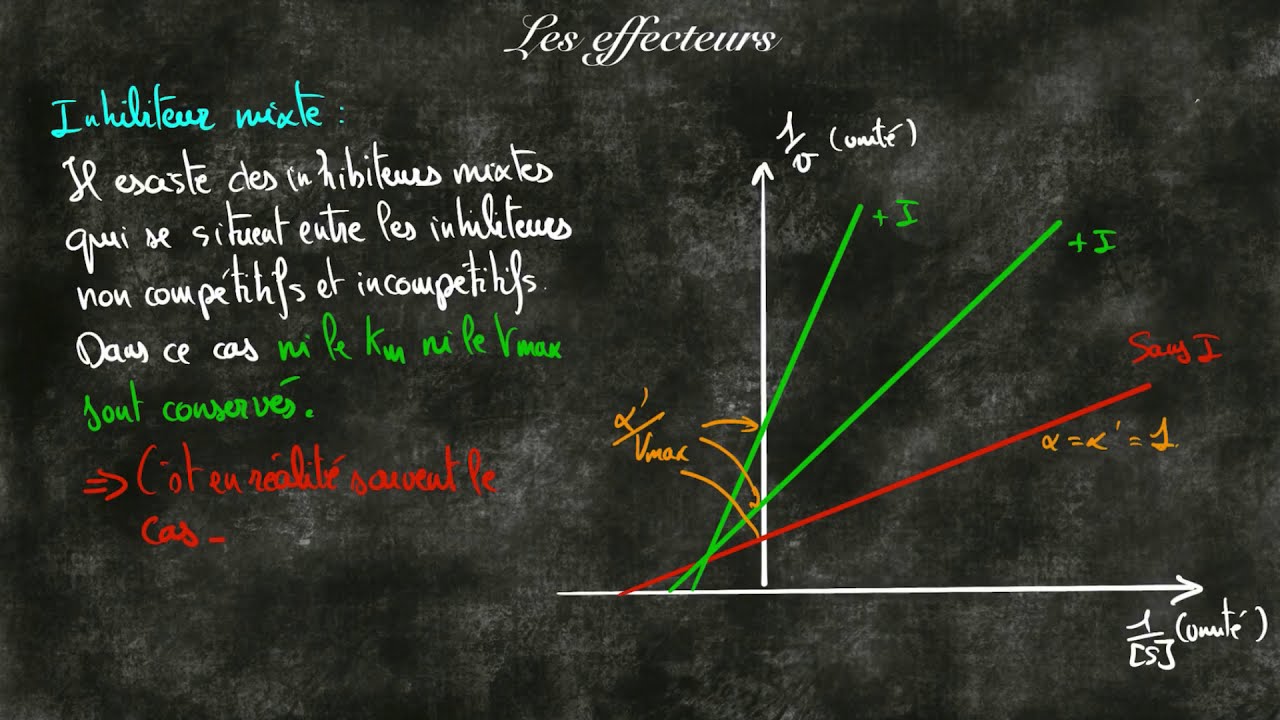 Les effecteurs
Inhibiteur mixte :
Il existe des inhibiteurs mixtes
qui se situent entre les inhibiteurs
non compétitifs et incompétitifs.
Dans ce cas ni le Km ni le Vmax
sont conservés.
⇒ C'est en réalité souvent le
cas –
1/v (unité)
+ I
+ I
Sans I
α'/Vmax
α = α' = 1.
1/[S] (unité)